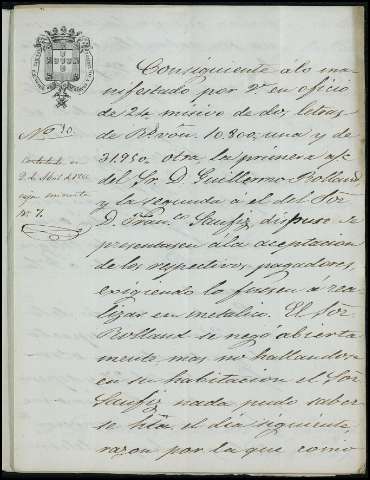 Consiguiente a lo ma-
nifestado por V. en oficio
de 24 inclusivo de dos letras
de Rs. von. 10.800, una y de
31.950 otra, la primera a/c
del Sr. D. Guillermo Rolland,
y la segunda a el del Sor.
D. Fran.co dispuse se
presentasen á la aceptacion
de los respectivos pagadores,
exigiendo lo fuesen á rea-
lizar en metalico. El Sor.
Rolland se negó abierta-
mente, mas no hallandose
en su habitacion el Sor.
nada pudo saber-
se hta. el dia siguiente,
razon por la que como
No. 30.
Contestada en
2 de
cuya minuta
No. 7.